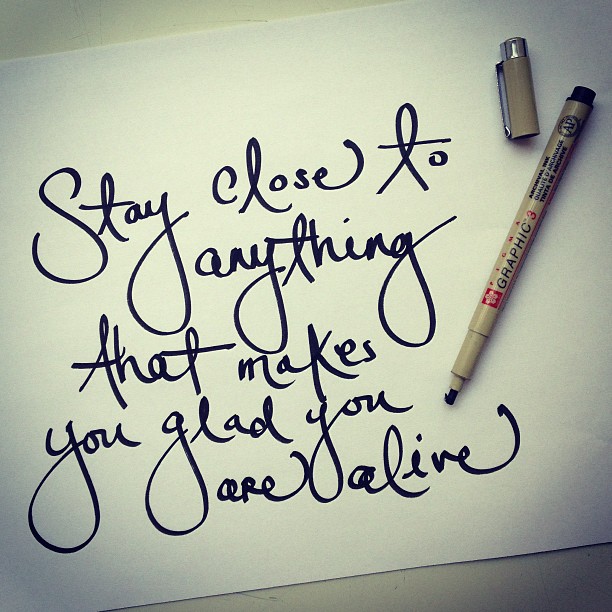 Stay close to
anything
that makes
you glad you
are alive
PIGMA
GRAPHIC 3
ARCHIVAL INK
QUALITÉ D'ARCHIVAGE
TINTA DE ARCHIVO
AP